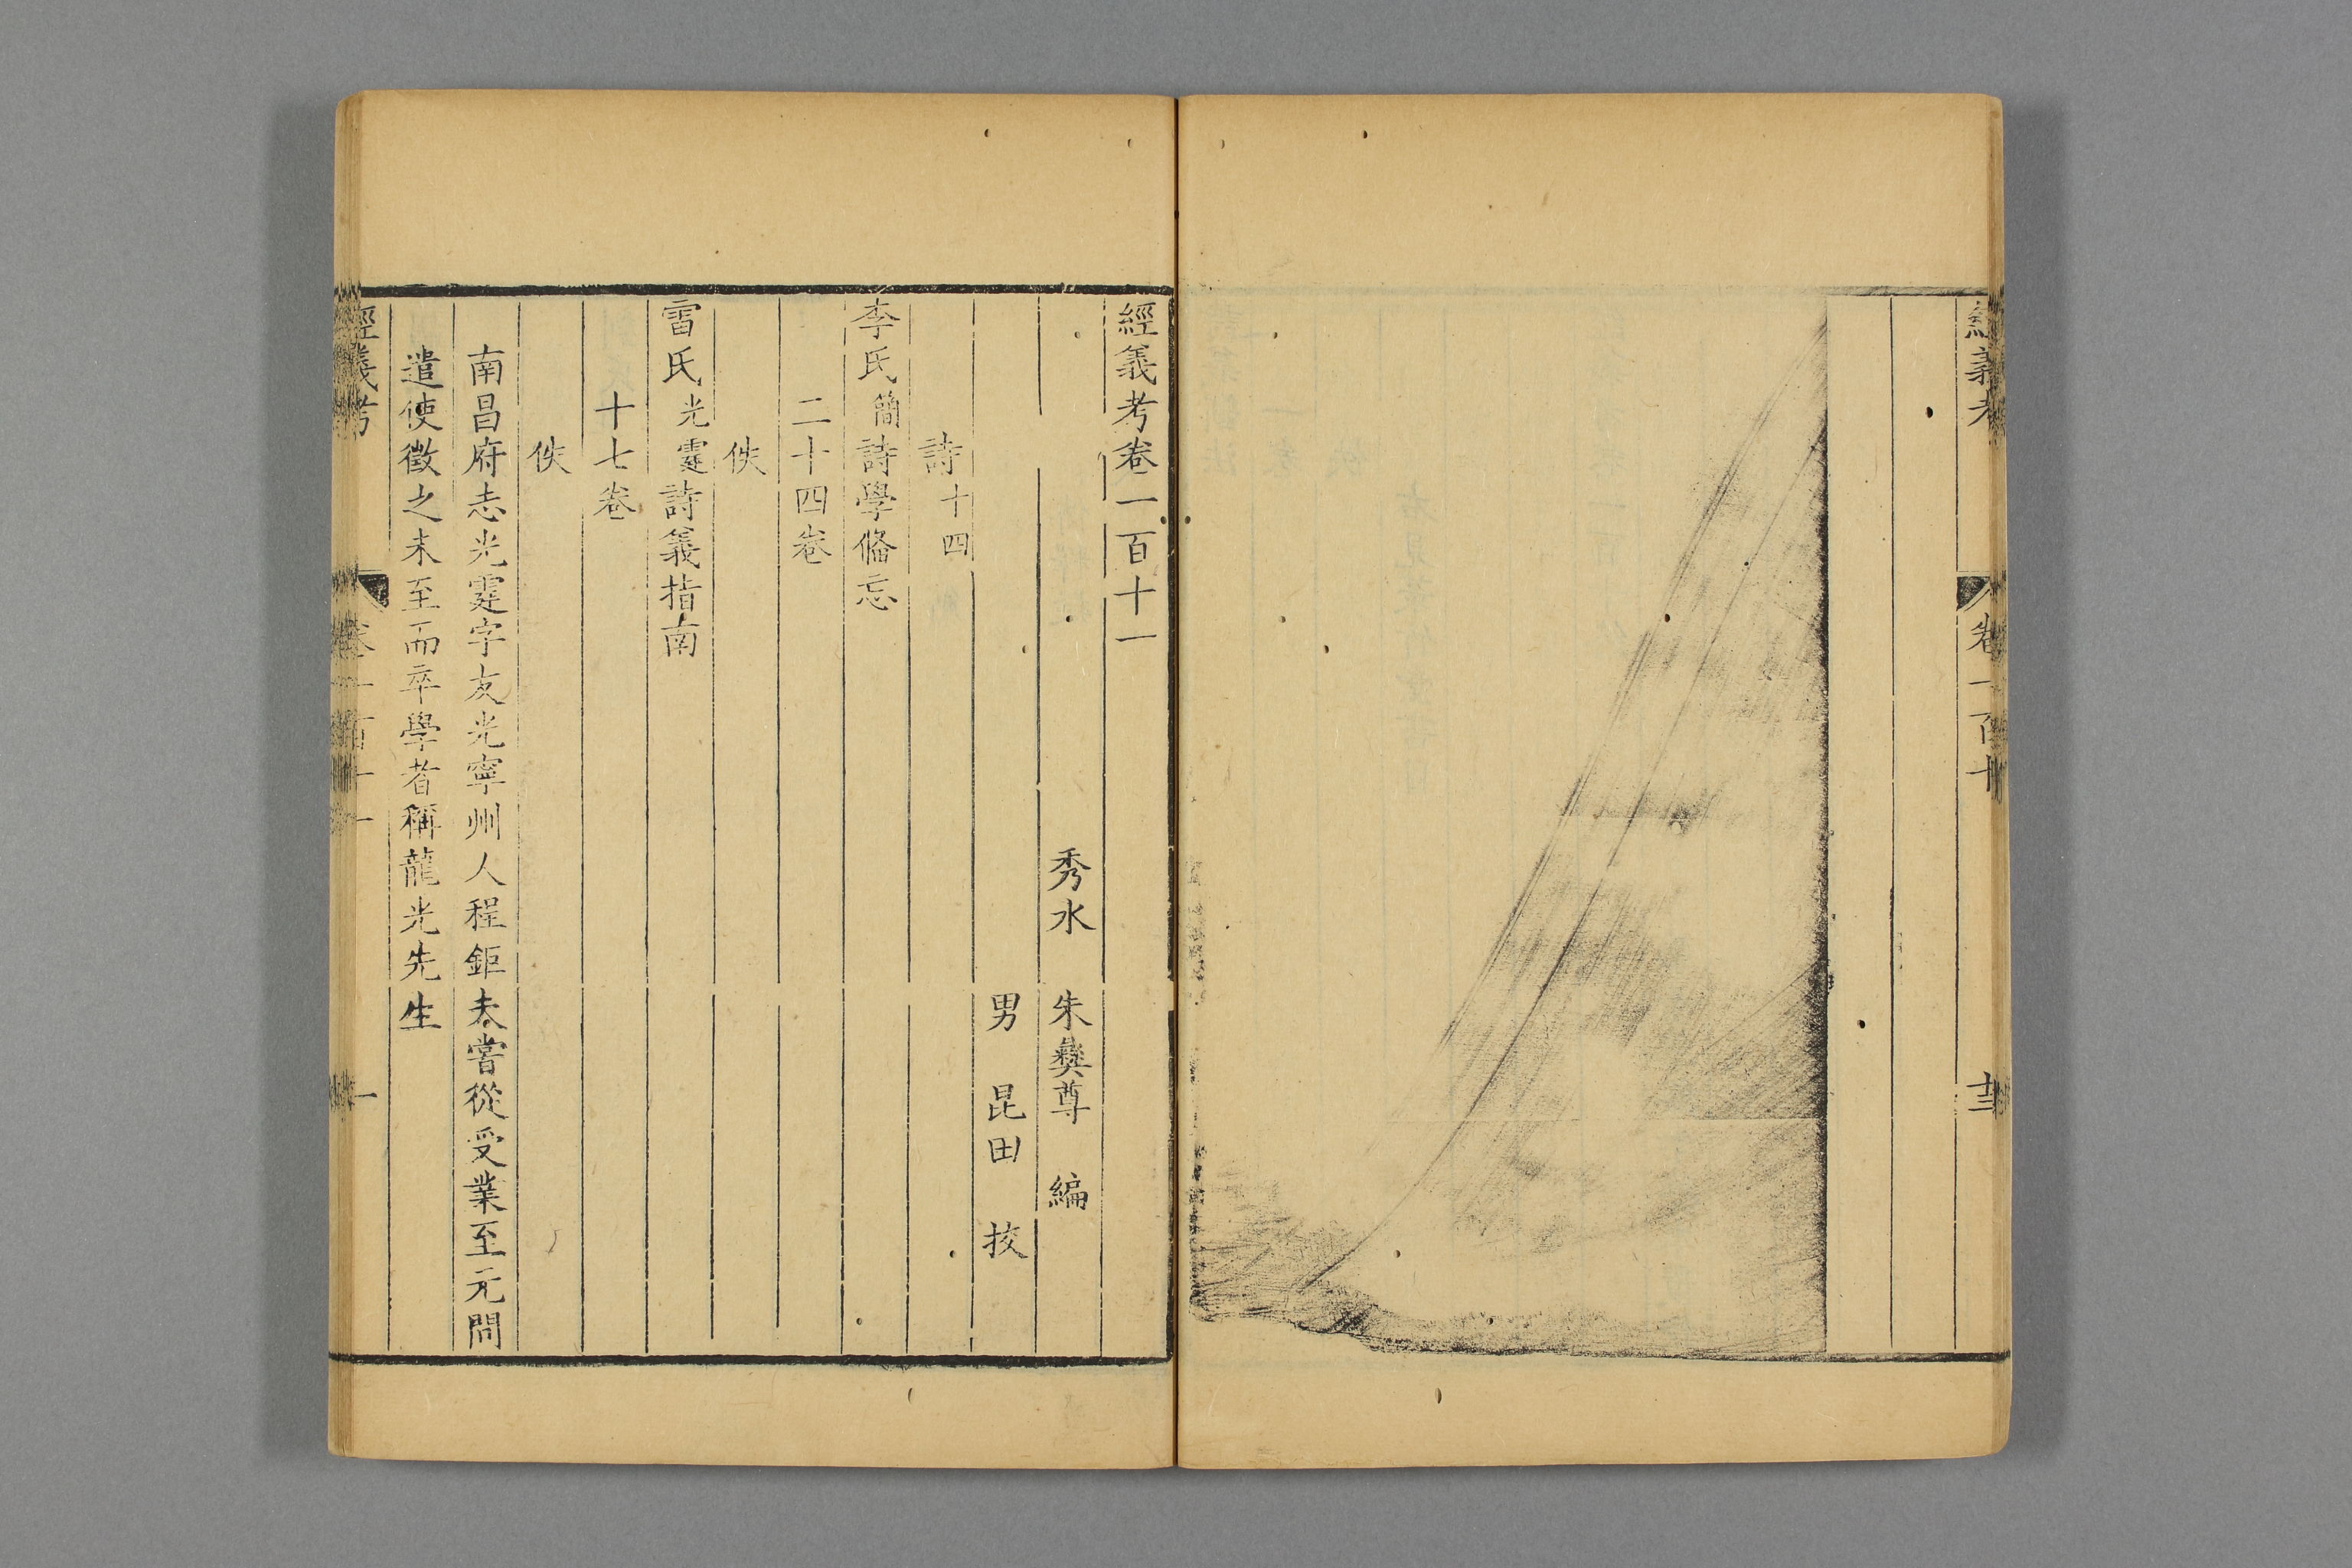 經義考
卷一百十
十三
經義考卷一百十一
秀水　朱彝尊　編
男　昆田　挍
詩十四
李氏簡詩學俻忘
二十四卷
佚
雷氏光霆詩義指南
十七卷
佚
南昌府志光霆字友光寧州人程鉅夫嘗從受業至元間
遣使徵之未至而卒學者稱龍光先生
經義考
卷一百十一
一